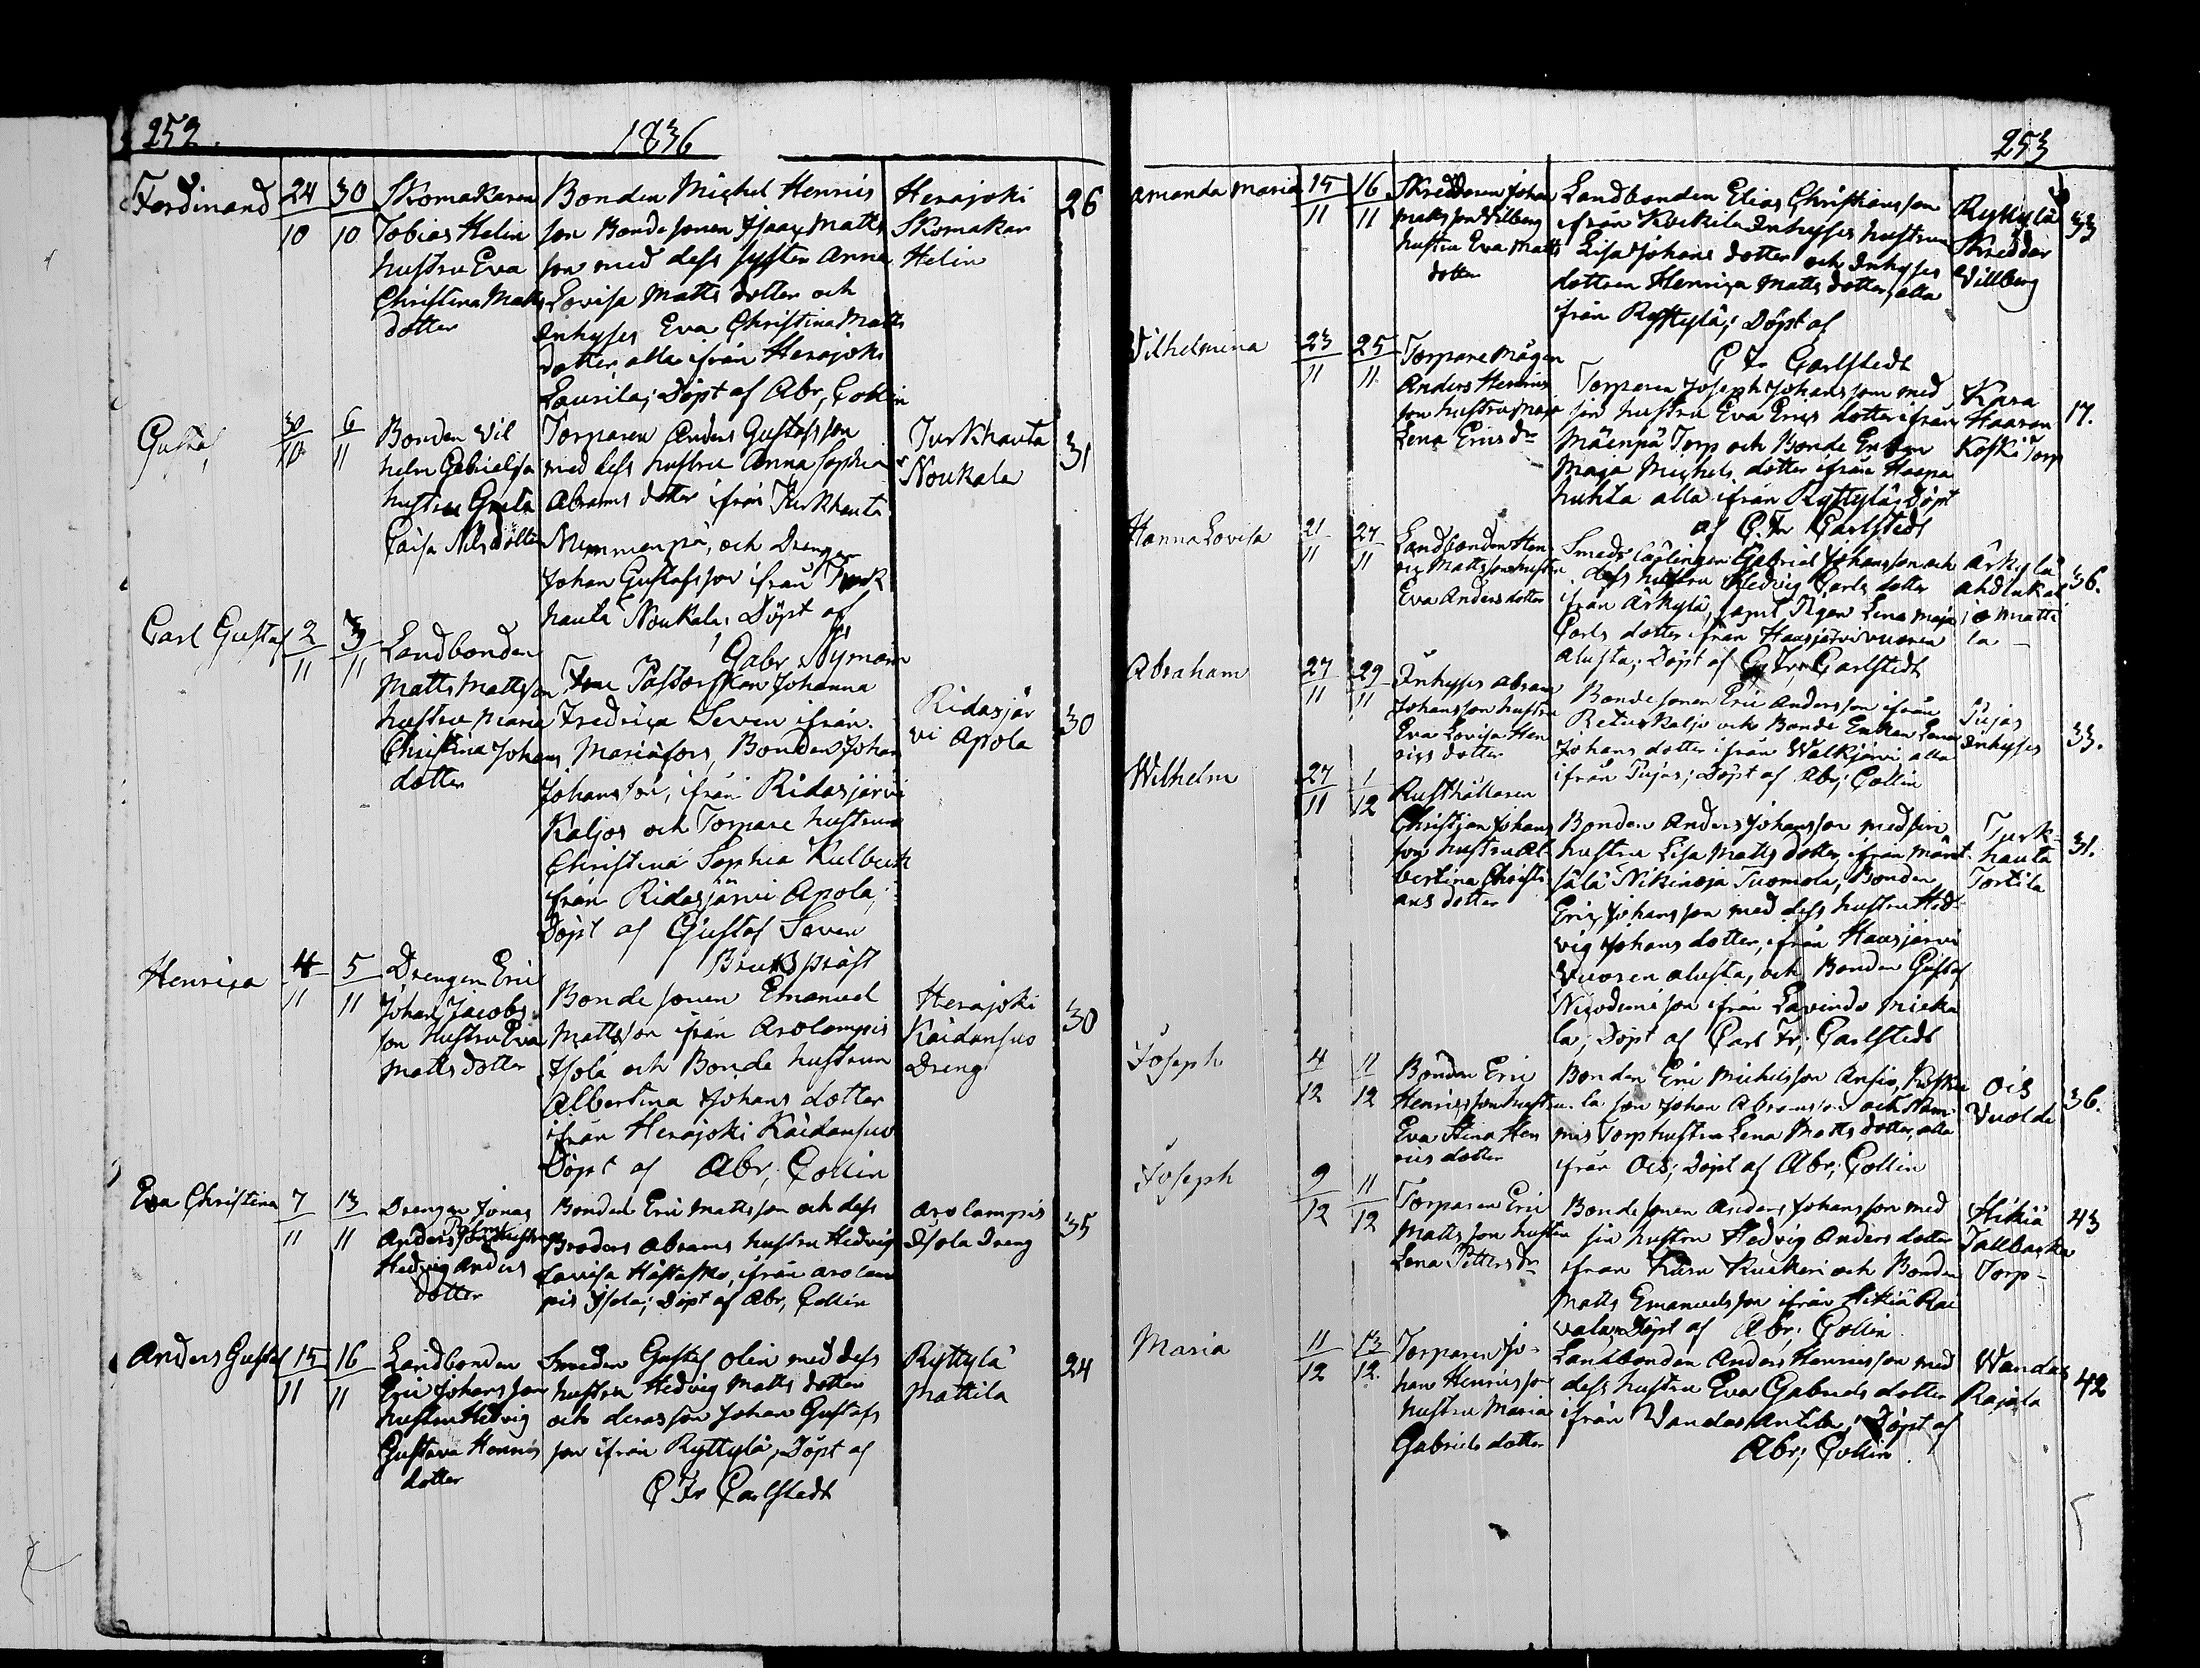 252.
1836
Ferdinand 24/10 30/10
Skomakaren
Tobias Helin
hustru Eva
Christina Matts
dotter
Bonden Michel Henrics
son Bondesonen Isaac Matts
son med dess syster Anna
Lovisa Matts dotter och
Inhyses Eva Christina Matts
dotter, alla ifrån Herajoki
Laurila; Döpt af Abr, Collin
Herajoki
Skomakar
Helin
26
Gustaf 30/10 6/11
Bonden Vil
helm Gabrielsson
hustru Greta
Caisa Nils dotter
Torparen Anders Gustafsson
med dess hustru Anna Sophia
Abrams dotter ifrån Turkhauta
och Drengen
Johan Gustafsson ifrån Turk
hauta Noukala; Döpt af
Gabr Nyman
Turkhauta
Noukala
31
Carl Gustaf 2/11 3/11
Landbonden
Matts Mattsson
hustru Maria
Christina Johans
dotter
Frue Pastorskan Johanna
Fredrica Seven ifrån
Mariæfors, Bonden Johan
Johansson, ifrån Ridasjärvi
Kaljos och Torpare hustrun
Christina Sophia Kulbeck
ifrån Ridasjärvi Apola;
Döpt af Gustaf Seven
Bruks präst
Ridasjär
vi Apola
30
Henrica 4/11 5/11
Drengen Eric
Johan Jacobs
son hustru Eva
Matts dotter
Bonde sonen Emanuel
Mattsson ifrån Arolampis
Isola och Bonde hustrun
Albertina Johans dotter
ifrån Herajoki Käidansuo
Döpt af Abr, Collin
Herajoki
Käidansuo
Dreng
30
Eva Christina 7/11 13/11
Drengen Jonas
Anders hustru
Hedvig Anders
dotter
Bonden Eric Mattsson och dess
Broders Abrams hustru Hedvig
Lovisa ifrån Arolam
pis Isola; Döpt af Abr, Collin
Arolampis
Isola Dreng
35
Anders Gustaf 15/11 16/11
Landbonden
Eric Johansson
hustru Hedvig
Gustava Henrics
dotter
Smeden Gustaf Olin med dess
hustru Hedvig Matts dotter
och deras son Johan Gustafs
son ifrån Ryttylä; Döpt af
C Fr Carlstedt
Ryttylä
Mattila
24
253
Amanda Maria 15/11 16/11
Skreddaren Johan
Mattsson Villberg
hustru Eva Matts
dotter
Landbonden Elias Christiansson
ifrån Kurkila Inhyses hustrun
Lisa Johans dotter och Inhyses
dottren Henrica Matts dotter, alla
ifrån Ryttylä; Döpt af
C Fr Carlstedt
Ryttylä
Skreddar
Villberg
33
Vilhelmina 23/11 25/11
Torpare Mågen
Anders Henrics
son hustru Maja
Lena Erics dr
Torparen Joseph Johansson med
sin hustru Eva Erics dotter ifrån
Mäenpä Torp och Bonde Enkan
Maja Michels dotter ifrån Haapa
huhta alla ifrån Ryttylä; Döpt
af C. Fr Carlstedt
Kara
Haaran
Koski Torp
17.
Hanna Lovisa 21/11 27/11
Landbonden Hen
ric Mattsson hustru
Eva Anders dotter
Smeds Lärlingen Gabriel Johansson och
dess hustru Hedvig Carls dotter
ifrån Ärkylä, samt Pigan Lena Maja
Carls dotter ifrån Hausjärvi vuoren
alusta; Döpt af C. Fr; Carlstedt
Ärkylä
36.
Abraham 27/11 29/11
Inhyses Abram
Johansson hustru
Eva Lovisa Hen
rics dotter
Bondesonen Eric Andersson ifrån
Retuskaljo och Bonde Enkan Lena
Johans dotter ifrån Walkjärvi alla
ifrån Pujas; Döpt af Abr; Collin
Pujas
Inhyses
33.
Wilhelm 27/11 1/12
Rusthållaren
Christjan Johans
son hustru Al
bertina Christi
ans dotter
Bonden Anders Johansson med sin
hustru Lisa Matts dotter, ifrån Mänt
sälä Nikinoja Tuomola, Bonden
Eric Johansson med dess hustru Hed
vig Johans dotter, ifrån Hausjärvi
Vuoren alusta, och Bonden Gustaf
Nicodemisson ifrån Lavindo Micka
la; Döpt af Carl Fr; Carlstedt
Turk-
hauta
Torttila
31.
Joseph 4/12 11/12
Bonden Eric
Henricsson hustru
Eva Stina Hen
rics dotter
Bonden Eric Michelsson
la son Johan Abramsson och
Torp hustru Lena Matts dotter, alla
ifrån Ois; Döpt af Abr; Collin
Ois
Vuolde
36.
Joseph 9/12 11/12
Torparen Eric
Mattsson hustru
Lena Petters dr
Bondesonen Anders Johansson med
sin hustru Hedvig Anders dotter
ifrån Karu och Bonden
Matts Emanuelsson ifrån Hikiä Rai
vala; Döpt af Abr; Collin
Hikiä
Tallbacka
Torp-
43
Maria 11/12 13/12.
Torparen Jo-
han Henricsson
hustru Maria
Gabriels dotter
Landbonden Anders Henricsson med
dess hustru Eva Gabriels dotter
ifrån Vandas Antila; Döpt af
Abr; Collin.
Wandas
Rajala
42